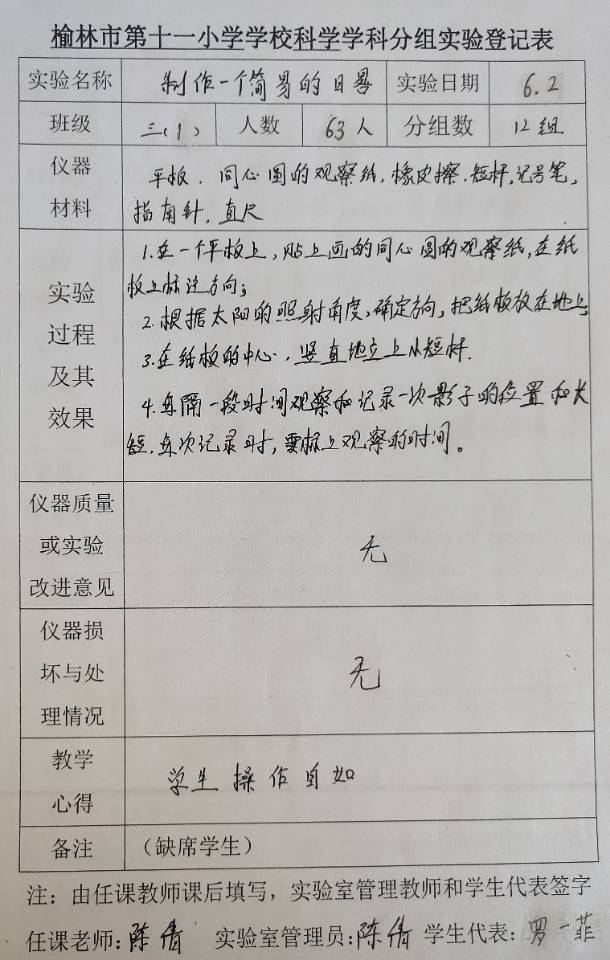 榆林市第十一小学学校科学学科分组实验登记表
实验名称 制作一个简易的日晷 实验日期 6.2
班级 三(1) 人数 63人 分组数 12组
仪器材料 平板．同心圆的观察纸，橡皮擦．短杆，记号笔，
指南针，直尺
实验过程及其效果
1.在一个平板上，贴上画的同心圆的观察纸，在纸
板上标注方向；
2.根据太阳的照射角度，确定方向，把纸板放在地上
3.在纸板的中心，竖直地立上短杆．
4.每隔一段时间观察和记录一次影子的位置和长
短，每次记录时，要标上观察的时间。
仪器质量或实验改进意见 无
仪器损坏与处理情况 无
教学心得 学生操作自如
备注 （缺席学生）
注：由任课教师课后填写，实验室管理教师和学生代表签字
任课老师：陈倩 实验室管理员：陈倩 学生代表：罗一菲